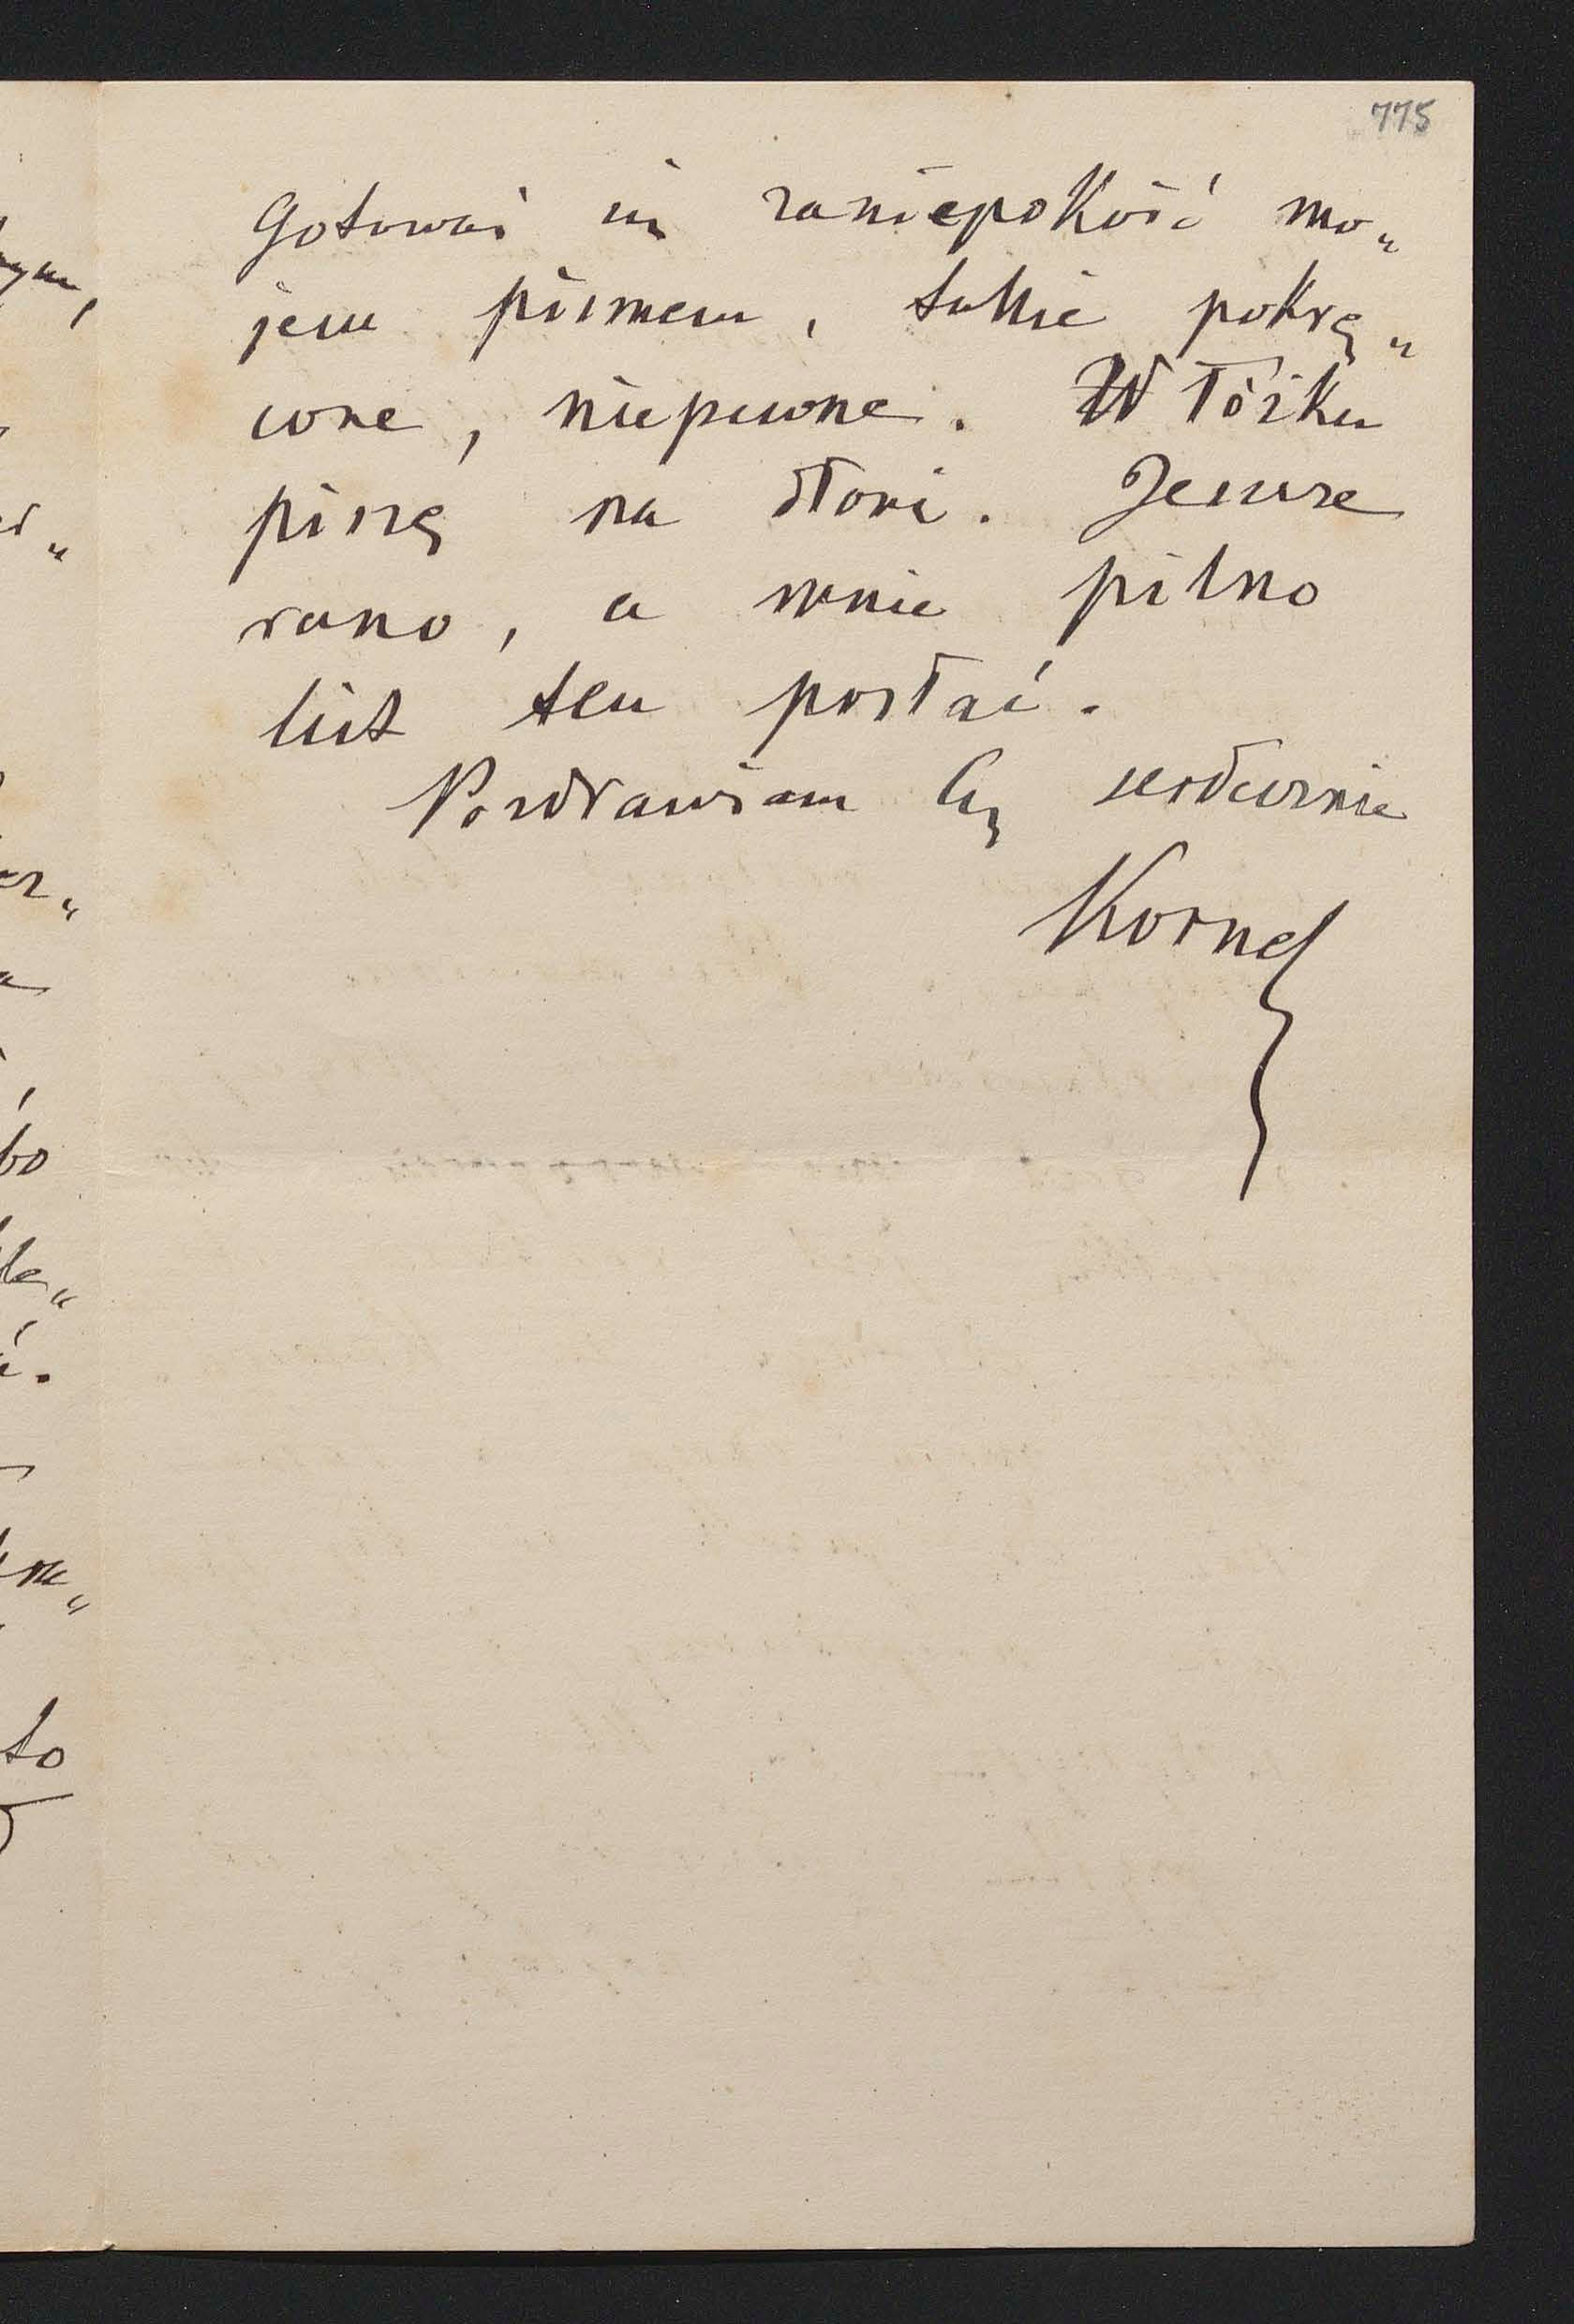 775
Gotowaś się zaniepokoić mo„
jem pismem, takie pokrę„
cone, niepewne. W łóżku
piszę na dłoni. Jeszcze
rano, a mnie pilno
list ten posłać.
Pozdrawiam Cię serdecznie
Kornel
bo
to